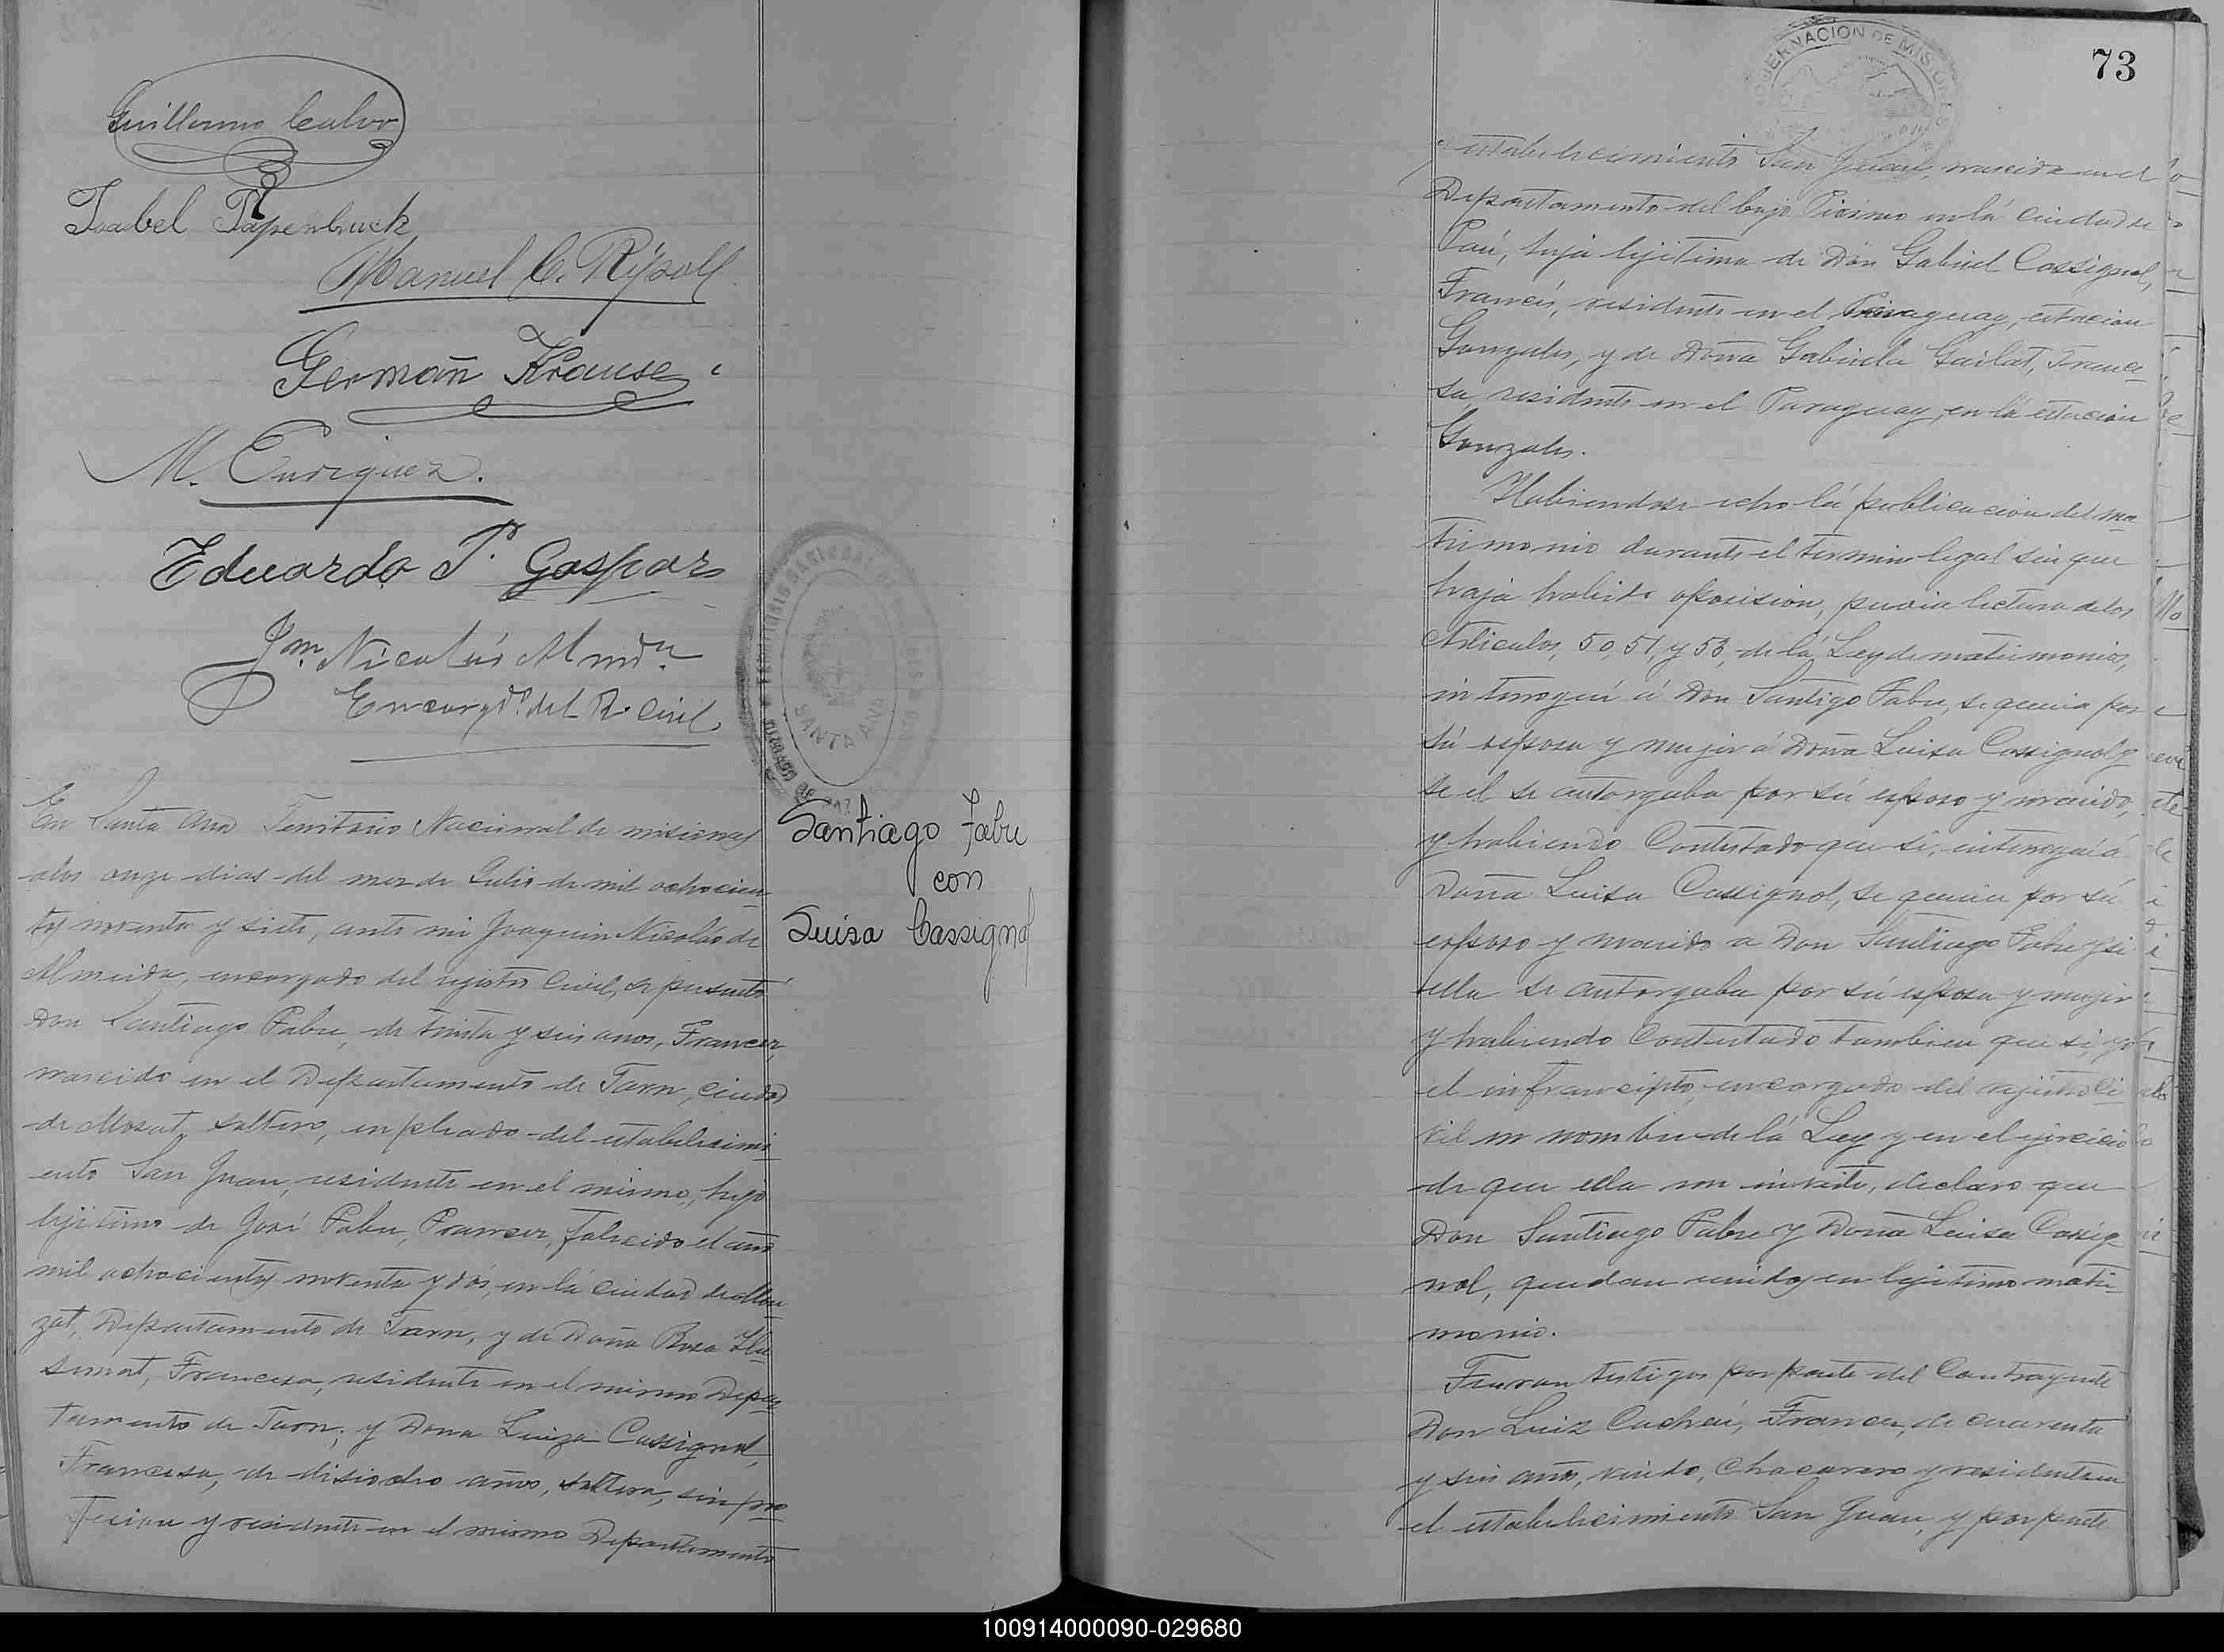 Guillermo Calvo
Isabel Papenbruck
Manuel C. Rípoll
Germañ Krause
M. Enriquez.
Eduardo P. Gaspar
Jm. Nicolás Almda
Encargdo. del R. Civil
SANTA ANA
En Santa Ana Territorio Nacional de misiones
alos onze dias del mes de Julio de mil ochocien
tos noventa y siete, ante mi Joaquin Nicolás de
Almeida, encargado del rejistro Civil, se presentó
Don Santiago Fabre, de trinta y seis anos, Frances,
nascido en el Departamento de Tarn, Ciudad
de Mosat, soltero, enpleado del establicimi
ento San Juan, residente en el mismo, hijo
lejitimo de José Fabre, Frances, falecido el año
mil ochocientos noventa y dós, en lá Ciudad de Mou
zat, Departamento de Tarn, y de Doña Rosa
Francesa, residente en el mismo Depar
tamento de Tarn; y Dona Luiza Cassignol,
Francesa, de disiocho años, soltera, sin pro
fecion y residente en el mismo Departamento
Santiago Fabre
con
Luisa Cassignol
GOBERNACION DE MISIONES
73
establecimiento San Juan, nascida en el
Departamento del bajo Pirineo en lá Ciudad de
Paú, hija lejitima de Don Gabriel Cassignol,
Francés, residente en el Paraguay, estacion
Gonzales, y de Doña Gabriela Gailat, France
sa residente en el Paraguay, en lá estacion
Gonzales.
Habiendose echo lá publicacion del ma
trimonio durante el termino legal sin que
haja habido oposision, previa lectura de los
Articulos, 50, 51, y 53, de lá Ley de matrimonios,
interrogué á Don Santigo Fabre, se queria por
sú esposa y mujer á Doña Luisa Cassignol y
se el se autorgaba por sú esposo y marido,
y habiendo Contestado que si, interrogué á
Doña Luisa Cassignol, se queria por sú
esposo y marido a Don Santiago Fabre y si
ella se autorgaba por sú esposa y mujer
y habiendo Contestado tambien que si, yo
el infrancipto, encargado del rejistro Ci
vil en nombre de lá Ley y en el ejercicio
de que ella me inviste, declaro que
Don Santiago Fabre y Doña Luisa Cassig
nol, quedan unidos en lejitimo matri
monio.
Fueron testigos por parte del Contrayente
Don Luiz Cachéi, Frances, de cuarenta
y seis años, viudo, Chacarero y residente en
el establicimiento San Juan, y por parte
100914000090-029680